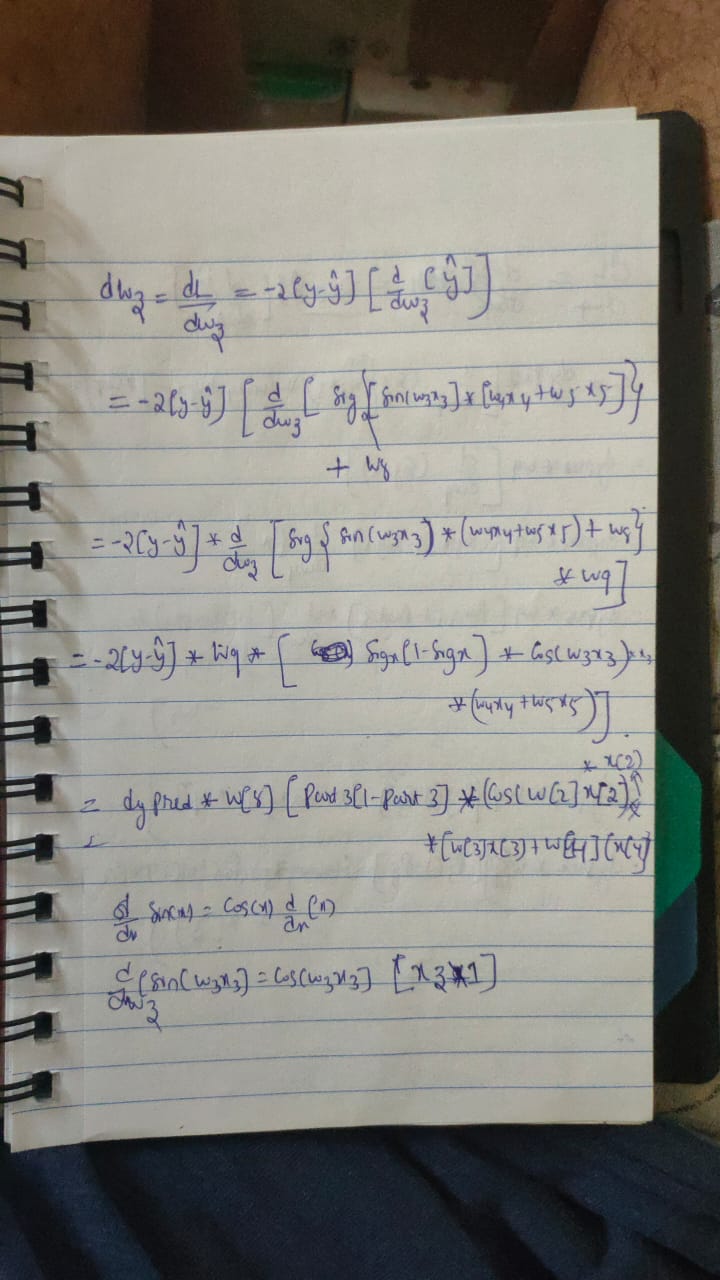 dw3 = dL/dw3 = -2(y-ŷ) [d/dw3 [ŷ]]
= -2(y-ŷ) [d/dw3 [ sig { sin(w3x3] * [w4x4 + w5x5] }
+ w8
= -2(y-ŷ] * d/dw3 [sig { sin(w3x3) * (w4x4+w5x5) + w8}
* w9]
= -2(y-ŷ] * w9 * [ sigx[1-sigx] * cos(w3x3)*x3
*(w4x4 + w5x5)].
* x(2)
= dypred * w[8] [part3[1-part3] * (cos(w[2]x[2])
*[w[3]x[3] + w[4] (x[4]
d/dx sin(x) = cos(x) d/dx (x)
d/dw3 [sin(w3x3] = cos(w3x3] [x3*1]